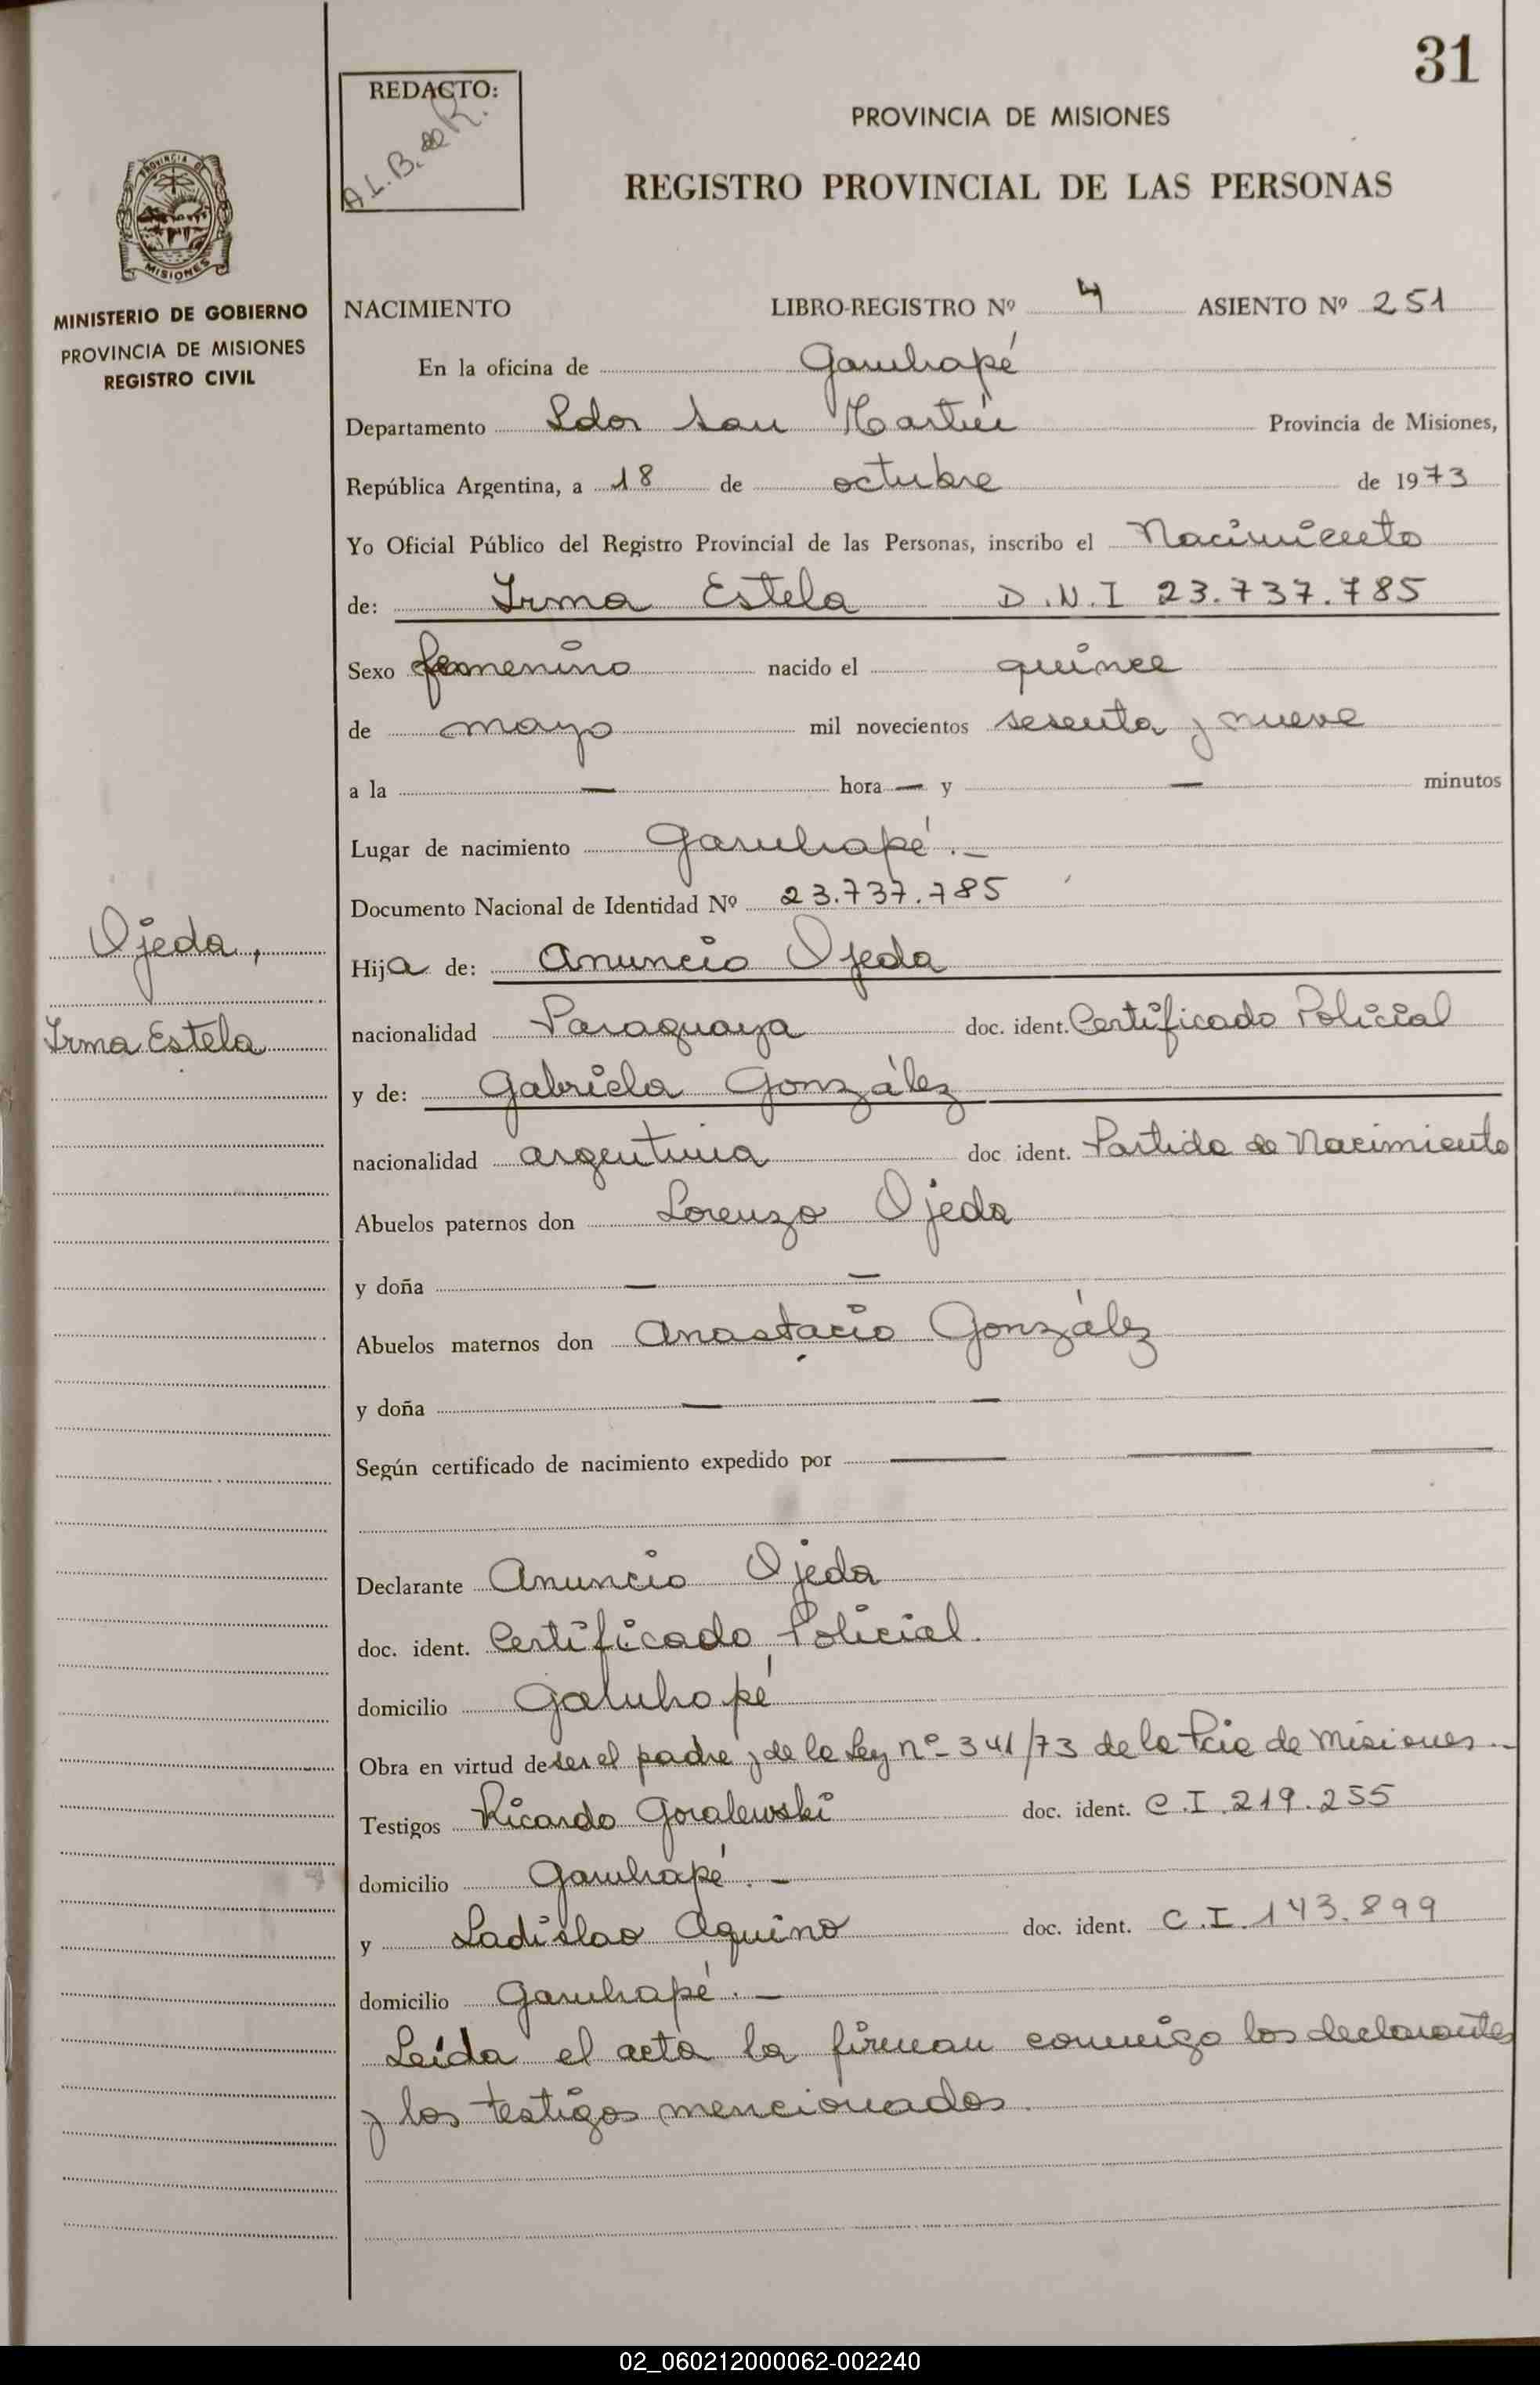 31
REDACTO:
A.L.B. de R.
PROVINCIA DE MISIONES
REGISTRO PROVINCIAL DE LAS PERSONAS
PROVINCIA DE
MISIONES
MINISTERIO DE GOBIERNO
PROVINCIA DE MISIONES
REGISTRO CIVIL
NACIMIENTO LIBRO-REGISTRO Nº 4 ASIENTO Nº 251
En la oficina de Garuhapé
Departamento Ldor San Martín Provincia de Misiones,
República Argentina, a 18 de octubre de 1973
Yo Oficial Público del Registro Provincial de las Personas, inscribo el Nacimiento
de: Irma Estela D.N.I 23.737.785
Sexo femenino nacido el quince
de mayo mil novecientos sesenta y nueve
a la — hora — y — minutos
Lugar de nacimiento Garuhapé.-
Documento Nacional de Identidad Nº 23.737.785
Ojeda,
Irma Estela
Hija de: Anuncio Ojeda
nacionalidad Paraguaya doc. ident. Certificado Policial
y de: Gabriela González
nacionalidad argentina doc ident. Partida de Nacimiento
Abuelos paternos don Lorenzo Ojeda
y doña — —
Abuelos maternos don Anastacio González
y doña — —
Según certificado de nacimiento expedido por — — —
Declarante Anuncio Ojeda
doc. ident. Certificado Policial.
domicilio Garuhapé
Obra en virtud de ser el padre y de la Ley nº 341/73 de la Pcia de Misiones.-
Testigos Ricardo Goralewski doc. ident. C.I. 219.255
domicilio Garuhapé.-
y Ladislao Aquino doc. ident. C.I. 143.899
domicilio Garuhapé.-
Leída el acta la firman conmigo los declarantes
y los testigos mencionados.
02_060212000062-002240